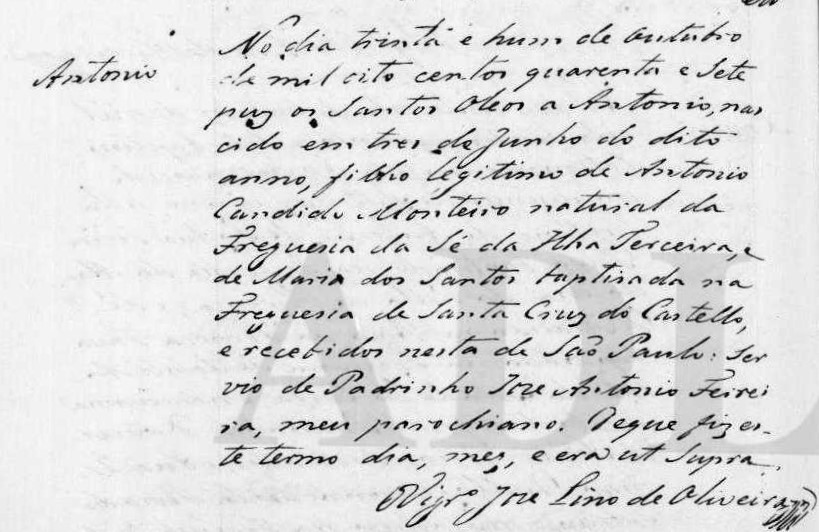 Antonio
No dia trinta e hum de Outubro
de mil oito centos quarenta e Sete
puz os Santos Oleos a Antonio, nas
cido em tres de Junho do dito
anno, filho legitimo de Antonio
Candido Monteiro natural da
Freguesia da Sé da Ilha Terceira, e
de Maria dos Santos baptisada na
Freguesia de Santa Cruz do Castello,
e recebidos nesta de São Paulo: Ser
vio de Padrinho Joze Antonio Ferrei
ra, meu parochiano. De que fiz es-
te termo dia, mez, e era ut Supra.
O Vigro. Joze Lino de Oliveira
ADL